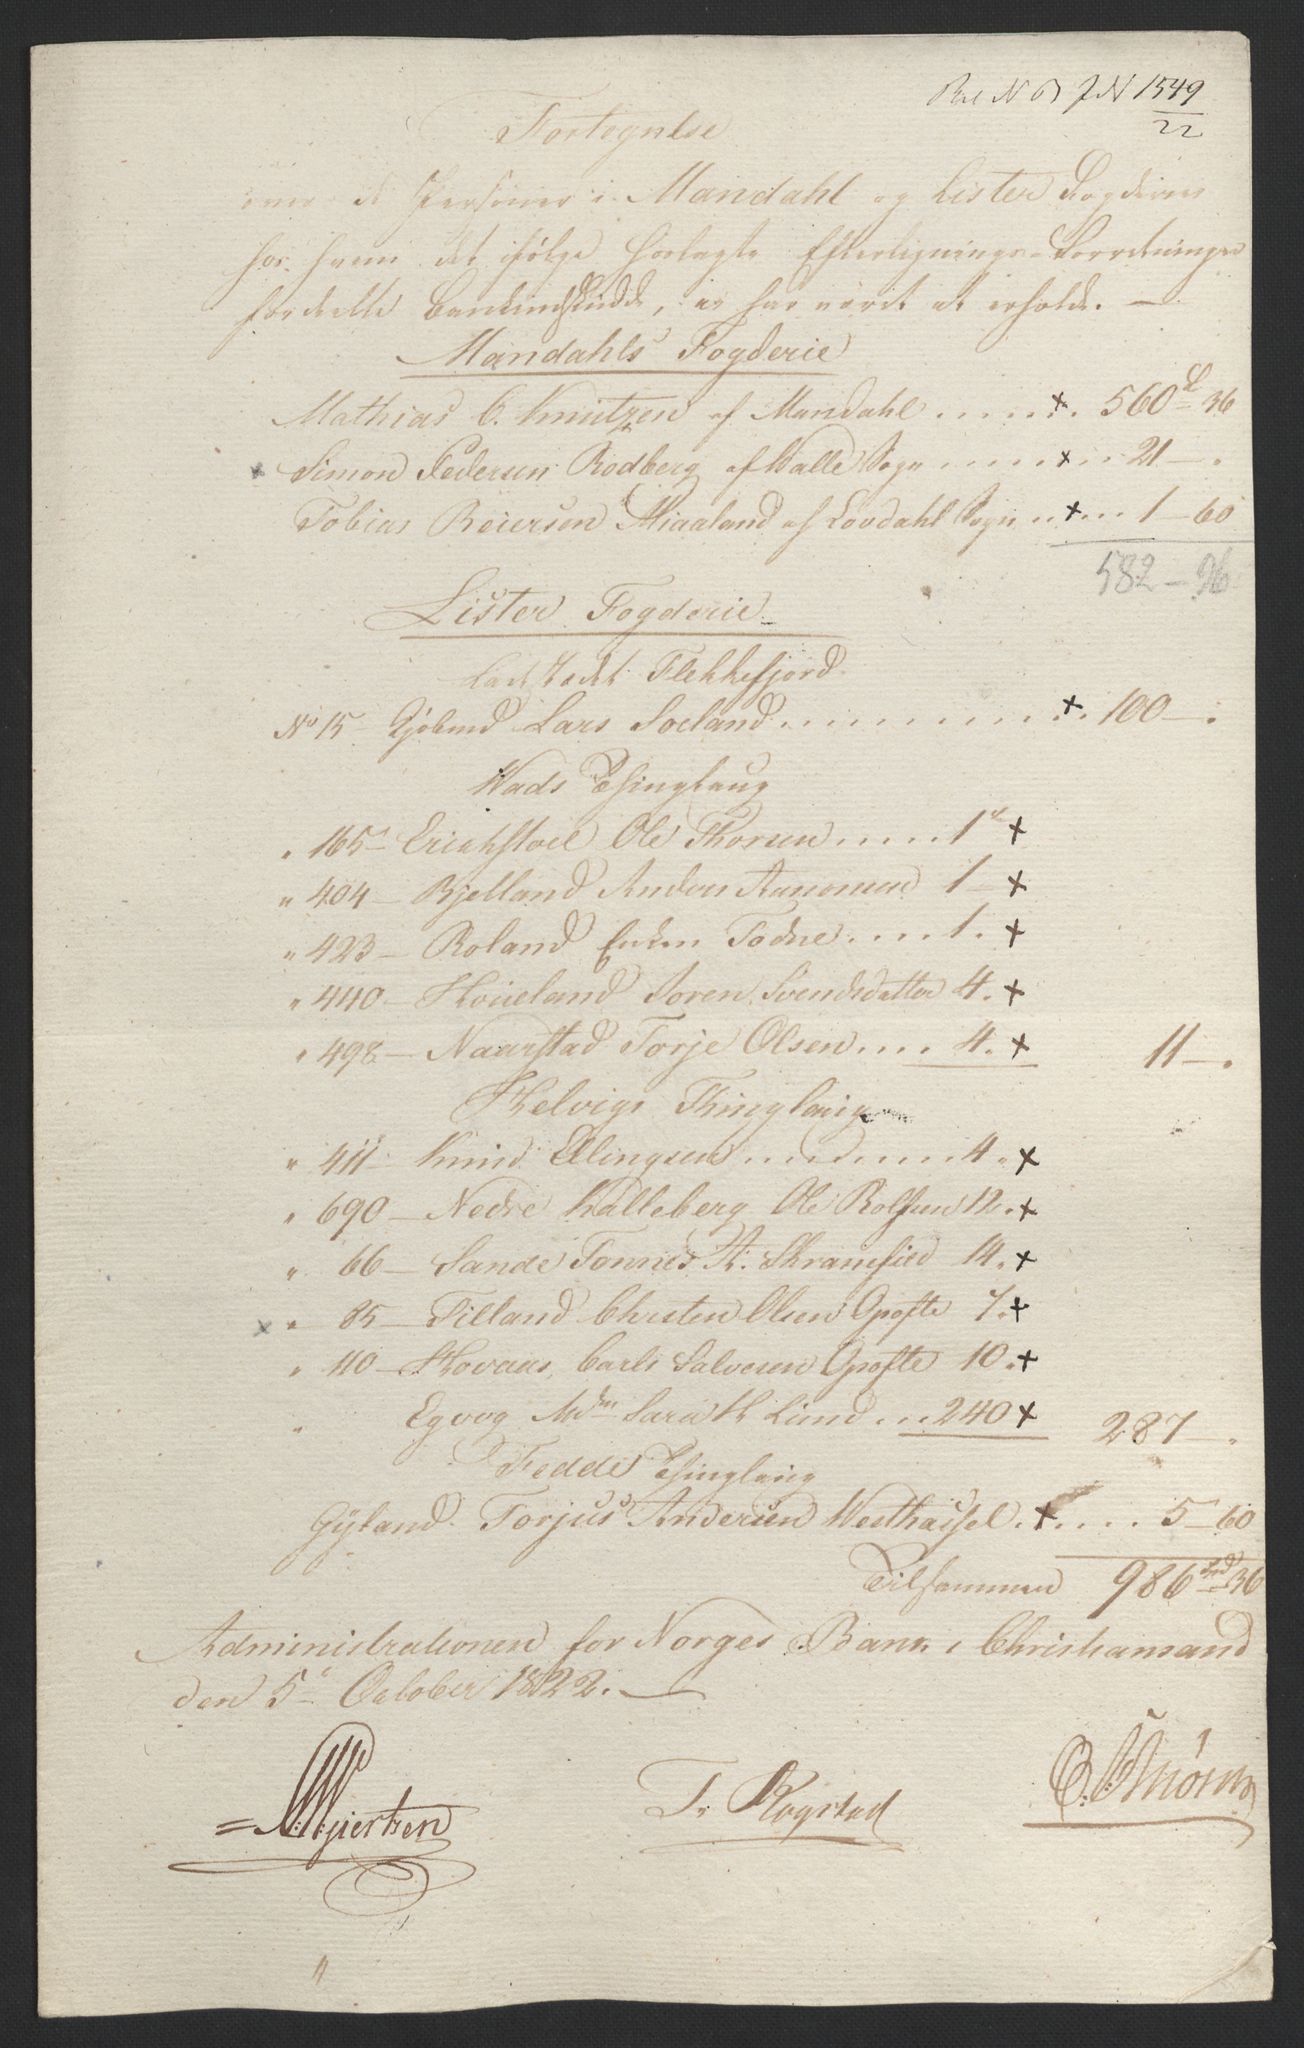 Bil N 6) J N 1549
22
Fortegnelse
over de Personer i Mandahl og Lister Fogderier
hos hvem det ifølge foretagte Efterligningsforretninger
fordeelte Bankindskudd, ei har været at erholde. —
Mandahls Fogderie
Mathias C. Knutzen af Mandahl ...... x. 560 - 36
Simon Pedersen Rodberg af Halle Sogn ..... x ... 21 — .
Tobias Reiersen Miaaland af Lovdahl Sogn .. x ... 1 - 60
582 - 96
Lister Fogderie
Ladestedet Flekkefjord
No 15 Lars Soeland ............ x. 100 — .
Wads Thinglaug
" 165 — Erichstoel Ole Thorsen ..... 1 x
" 404 — Bjelland Anders Aanonsen 1 — x
" 423 — Roland Enken Todne .... 1. x
" 440 — Hoieland Soren Svendsdatter 4. x
" 498 — Naarstad Torje Olsen .... 4. x 11 — .
Helvigs Thinglaug
" 411 Knud Ellingsen ........ 4 " x
" 690 — Nedre Kalleberg Ole Rolfsen 12. x
" 66 — Sande Tonnes A. Skranefied 14. x
x " 85 — Tilland Christen Olsen Opofte 7. x
" 110 — Hovaas, Carl Salvesen Opofte 10. x
" Egvog Mdm Sara H Lund ... 240 x 287 — .
Fedde Thinglaug
Gyland. Torjus Andersen Westhassel . x .... 5 - 60
Tilsammen 986 Spd 36
Administrationen for Norges Bank i Christiansand
den 5 October 1822. —
= Hjertzen
T. Rogstad
O.